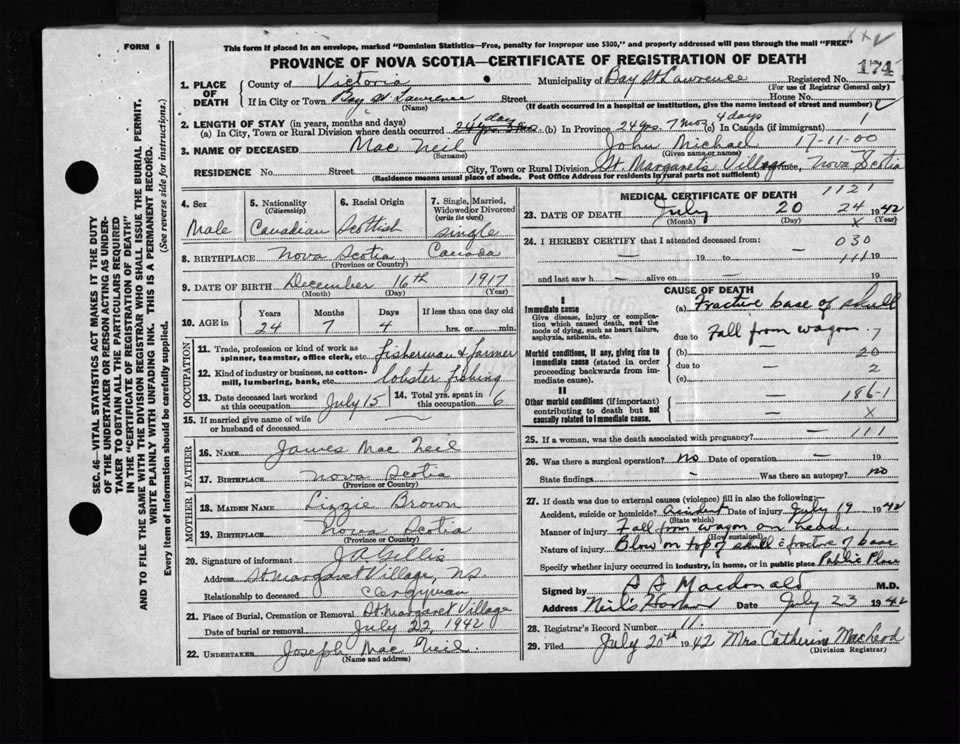 FORM 6
This form if placed in an envelope, marked "Dominion Statistics—Free, penalty for improper use $300," and properly addressed will pass through the mail "FREE"
PROVINCE OF NOVA SCOTIA—CERTIFICATE OF REGISTRATION OF DEATH
174
1. PLACE OF DEATH
County of Victoria Municipality of Bay St Lawrence Registered No.
(For use of Registrar General only)
If in City or Town Bay St Lawrence Street House No.
(Name) (If death occurred in a hospital or institution, give the name instead of street and number)
2. LENGTH OF STAY (in years, months and days)
(a) In City, Town or Rural Division where death occurred 24 yrs (b) In Province 24 yrs 7 mos 4 days (c) In Canada (if immigrant) 1
3. NAME OF DECEASED Mac Neil John Michael 17-11-00
(Surname) (Given name or names)
RESIDENCE No. Street City, Town or Rural Division St. Margarets Village Province, Nova Scotia
(Residence means usual place of abode. Post Office Address for residents in rural parts not sufficient)
4. Sex
Male
5. Nationality
(Citizenship)
Canadian
6. Racial Origin
Scottish
7. Single, Married, Widowed or Divorced
(write the word)
Single
8. BIRTHPLACE Nova Scotia Canada
(Province or Country)
9. DATE OF BIRTH December 16th 1917
(Month) (Day) (Year)
10. AGE in
Years Months Days If less than one day old
24 7 4 hrs. or min.
OCCUPATION
11. Trade, profession or kind of work as spinner, teamster, office clerk, etc. fisherman & farmer
12. Kind of industry or business, as cotton-mill, lumbering, bank, etc. lobster fishing
13. Date deceased last worked at this occupation July 15
14. Total yrs. spent in this occupation 6
15. If married give name of wife or husband of deceased —
FATHER
16. NAME James Mac Neil
17. BIRTHPLACE Nova Scotia
(Province or Country)
MOTHER
18. MAIDEN NAME Lizzie Brown
19. BIRTHPLACE Nova Scotia
(Province or Country)
20. Signature of informant J A Gillis
Address St Margaret Village, N.S.
Relationship to deceased Clergyman
21. Place of Burial, Cremation or Removal St Margaret Village
Date of burial or removal July 22, 1942
22. UNDERTAKER Joseph Mac Neil
(Name and address)
MEDICAL CERTIFICATE OF DEATH
1121
23. DATE OF DEATH July 20 24 1942
(Month) (Day) (Year)
X
24. I HEREBY CERTIFY that I attended deceased from:
030
— 19 to — 111 19
and last saw h — alive on — 19
CAUSE OF DEATH
I
Immediate cause
Give disease, injury or complication which caused death, not the mode of dying, such as heart failure, asphyxia, asthenia, etc.
(a) Fractive base of skull
due to Fall from wagon 7
Morbid conditions, if any, giving rise to immediate cause (stated in order proceeding backwards from immediate cause).
(b) — 20
due to — 2
(c) —
II
Other morbid conditions (if important) contributing to death but not causally related to immediate cause.
— 186-1
— X
25. If a woman, was the death associated with pregnancy? — 111
26. Was there a surgical operation? No Date of operation — 19
State findings — Was there an autopsy? no
27. If death was due to external causes (violence) fill in also the following:—
Accident, suicide or homicide? Accident Date of injury July 19 1942
(State which)
Manner of injury Fall from wagon on head.
(How sustained)
Nature of injury Blow on top of skull & fractive of base
Specify whether injury occurred in industry, in home, or in public place Public Place
Signed by A A Macdonald M.D.
Address Neil's Harbor Date July 23 1942
28. Registrar's Record Number 11.
29. Filed July 20th 1942 Mrs Catherine MacLeod
(Division Registrar)
SEC. 46—VITAL STATISTICS ACT MAKES IT THE DUTY
OF THE UNDERTAKER OR PERSON ACTING AS UNDER-
TAKER TO OBTAIN ALL THE PARTICULARS REQUIRED
IN THE "CERTIFICATE OF REGISTRATION OF DEATH"
AND TO FILE THE SAME WITH THE DIVISION REGISTRAR WHO SHALL ISSUE THE BURIAL PERMIT.
WRITE PLAINLY WITH UNFADING INK. THIS IS A PERMANENT RECORD.
Every item of information should be carefully supplied. (See reverse side for instructions.)